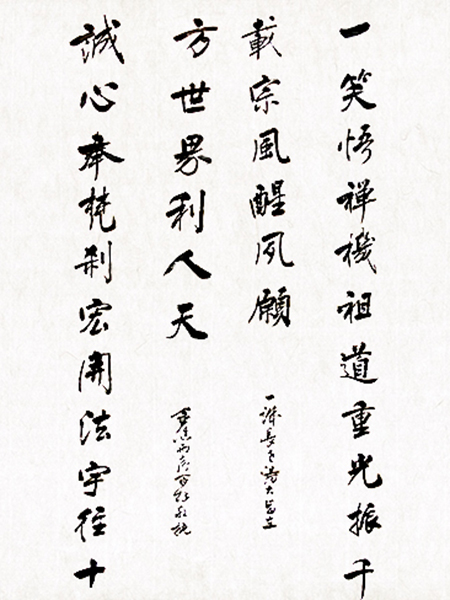 一笑悟禅機祖道重光振千
載宗風醒夙願
一誠長老
誠心奉梵刹宏開法宇十
方世界利人天